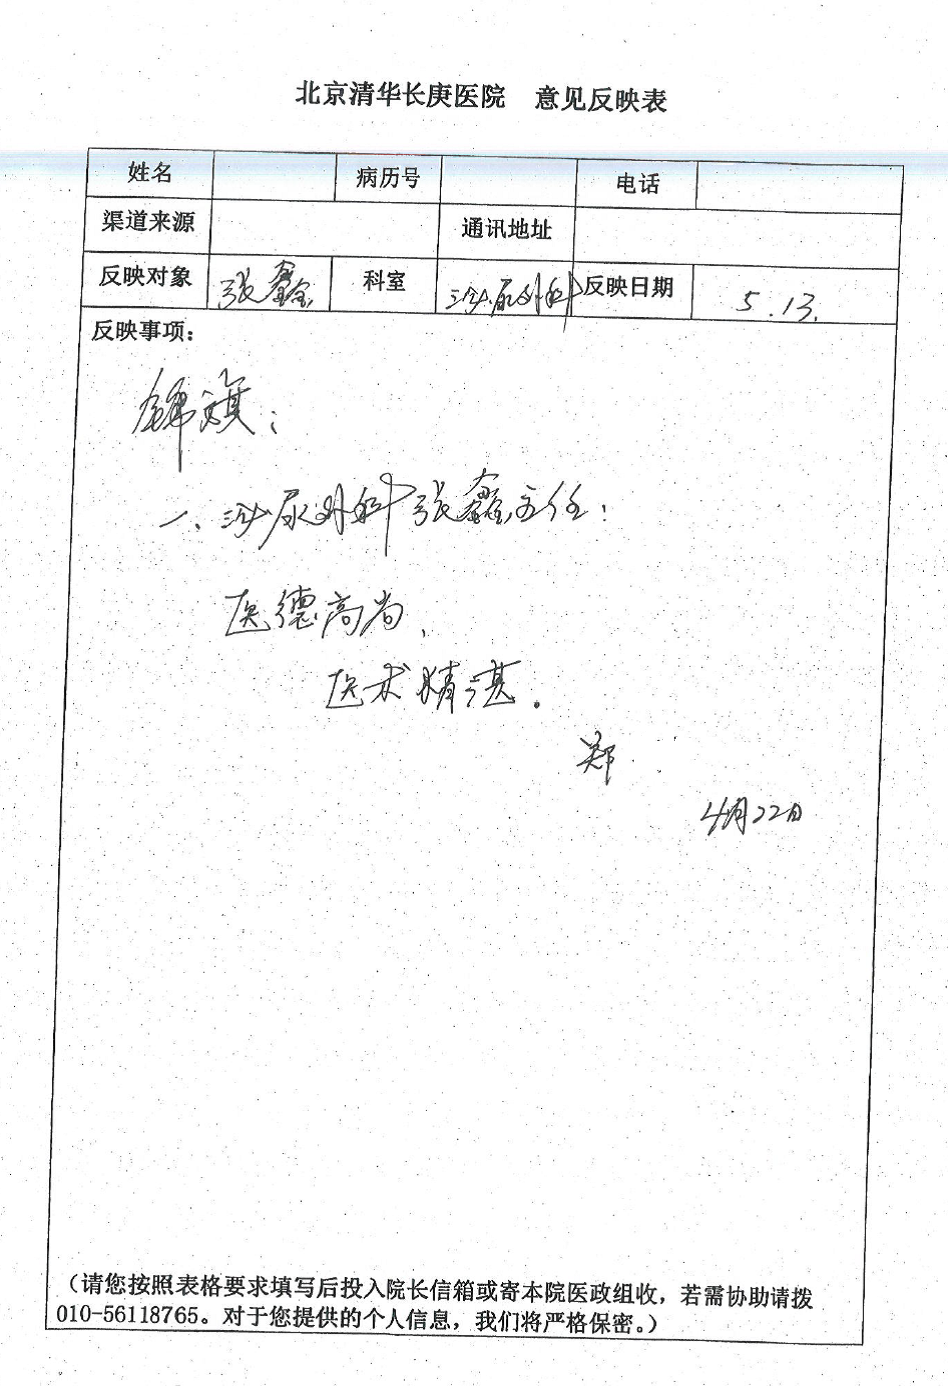 北京清华长庚医院 意见反映表
姓名 病历号 电话
渠道来源 通讯地址
反映对象 张鑫 科室 泌尿外科 反映日期 5.13.
反映事项：
锦旗：
一、泌尿外科张鑫主任：
医德高尚、
医术精湛。
郑
4月22日
（请您按照表格要求填写后投入院长信箱或寄本院医政组收，若需协助请拨
010-56118765。对于您提供的个人信息，我们将严格保密。）